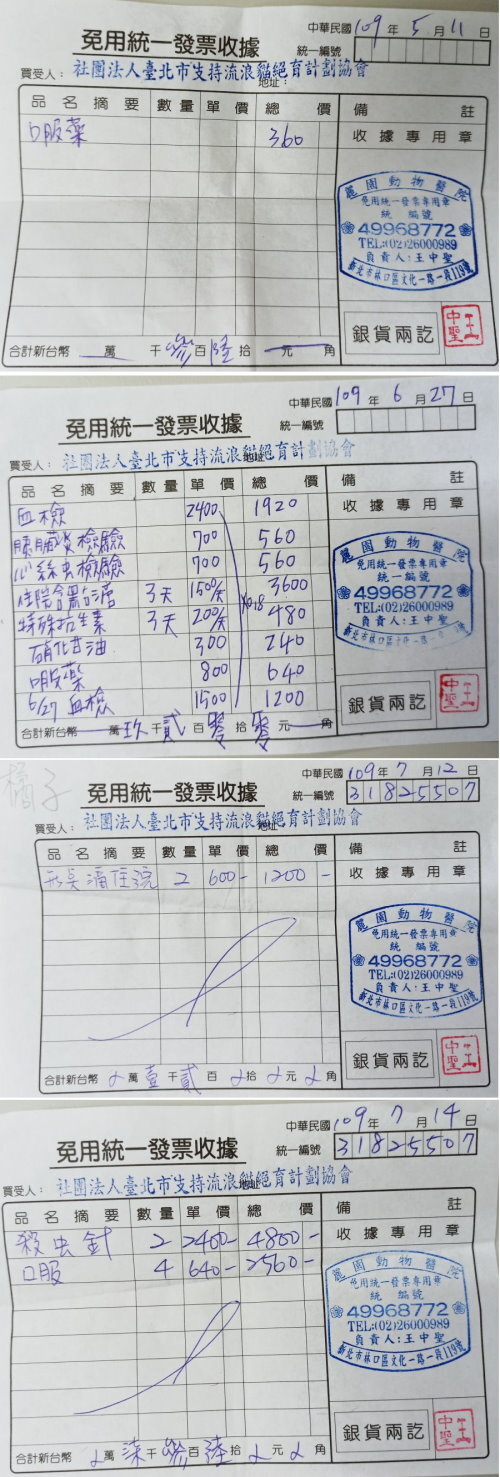 中華民國109年5月11日
免用統一發票收據
統一編號
買受人：社團法人臺北市支持流浪貓絕育計劃協會
地址：
品名摘要 數量 單價 總價 備註
口服藥 360
收據專用章
麗園動物醫院
免用統一發票專用章
統一編號
49968772
TEL:(02)26000989
負責人:王中聖
新北市林口區文化一路一段119號
銀貨兩訖
王中聖
合計新台幣 萬 千 參百 陸拾 元 角
中華民國109年6月27日
免用統一發票收據
統一編號
買受人：社團法人臺北市支持流浪貓絕育計劃協會
地址
品名摘要 數量 單價 總價 備註
血檢 2400 1920
收據專用章
胰臟炎檢驗 700 560
心絲虫檢驗 700 560
住院含點滴 3天 1500/天 3600
特殊抗生素 3天 200/天 480
x0.8
硝化甘油 300 240
口服藥 800 640
6/27 血檢 1500 1200
麗園動物醫院
免用統一發票專用章
統一編號
49968772
TEL:(02)26000989
負責人:王中聖
新北市林口區文化一路一段119號
銀貨兩訖
王中聖
合計新台幣 萬 玖千 貳百 零拾 零元 角
橘子
中華民國109年7月12日
免用統一發票收據
統一編號 31825507
買受人：社團法人臺北市支持流浪貓絕育計劃協會
地址
品名摘要 數量 單價 總價 備註
住院 2 600- 1200-
收據專用章
麗園動物醫院
免用統一發票專用章
統一編號
49968772
TEL:(02)26000989
負責人:王中聖
新北市林口區文化一路一段119號
銀貨兩訖
王中聖
合計新台幣 萬 壹千 貳百 拾 元 角
中華民國109年7月14日
免用統一發票收據
統一編號 31825507
買受人：社團法人臺北市支持流浪貓絕育計劃協會
地址
品名摘要 數量 單價 總價 備註
殺虫針 2 2400- 4800-
收據專用章
口服 4 640- 2560-
麗園動物醫院
免用統一發票專用章
統一編號
49968772
TEL:(02)26000989
負責人:王中聖
新北市林口區文化一路一段119號
銀貨兩訖
王中聖
合計新台幣 萬 柒千 參百 陸拾 元 角